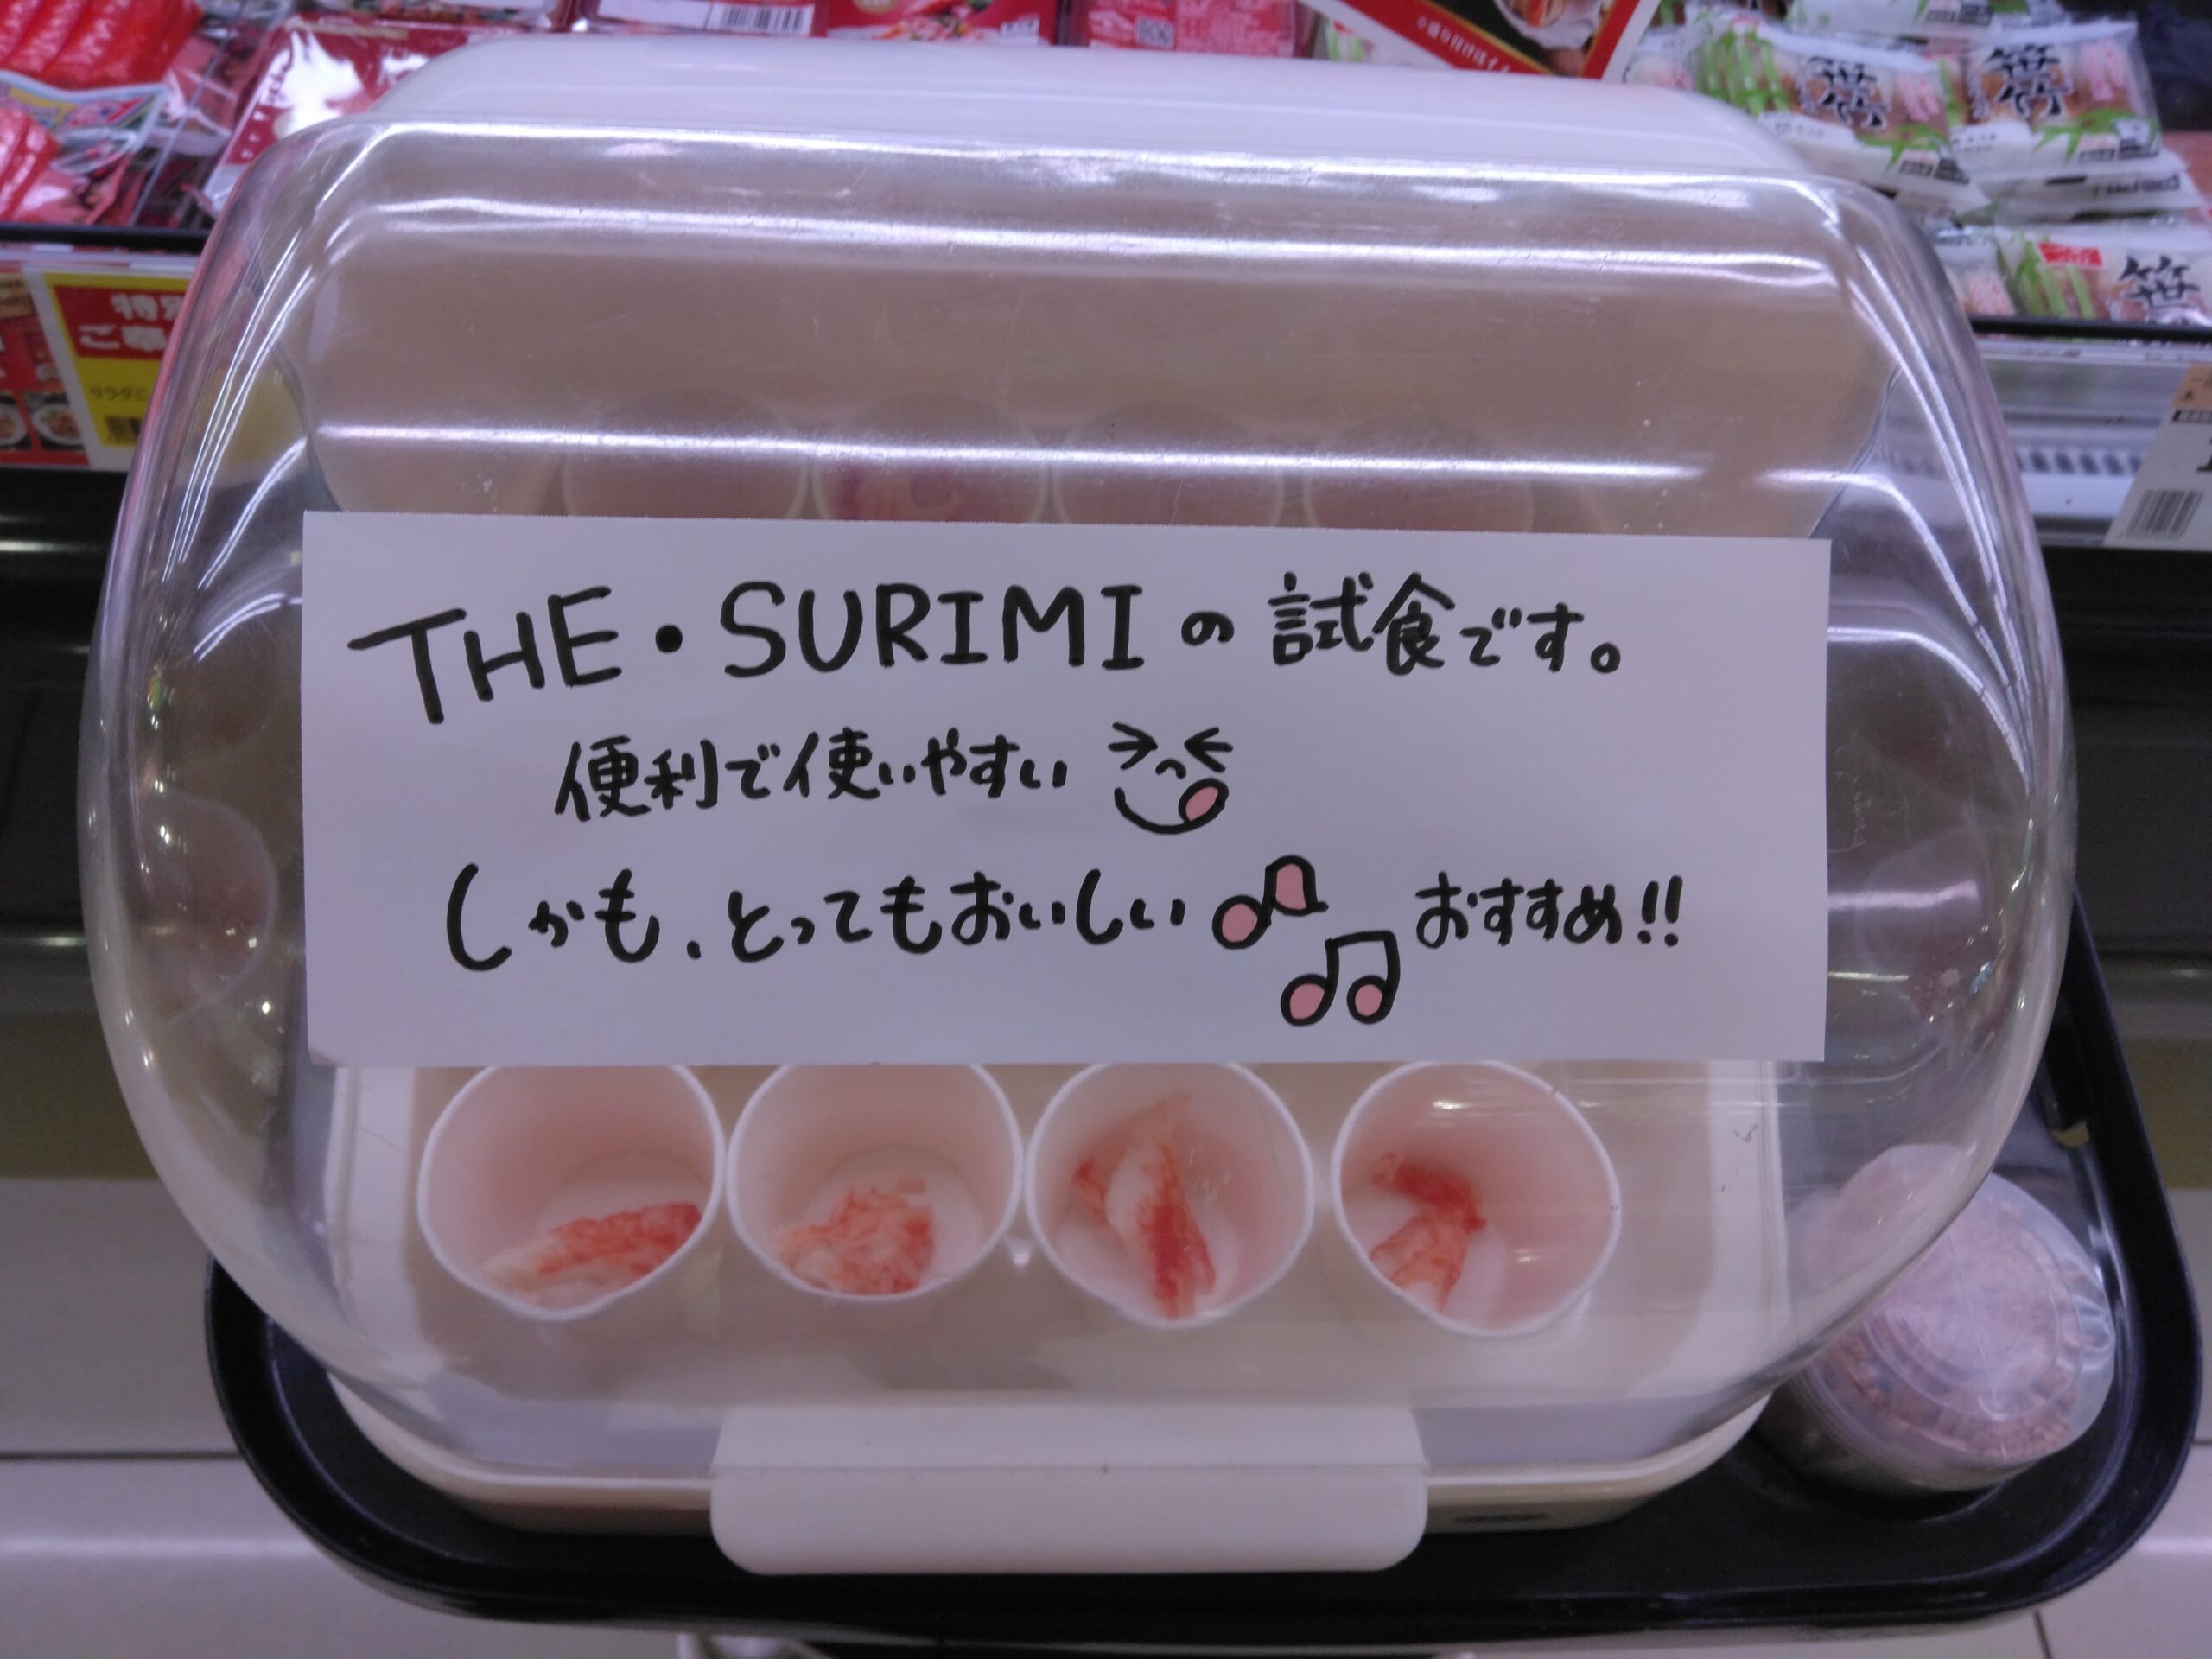 笹竹
笹竹
笹
THE・SURIMIの試食です。
便利で使いやすい
しかも、とってもおいしい おすすめ!!